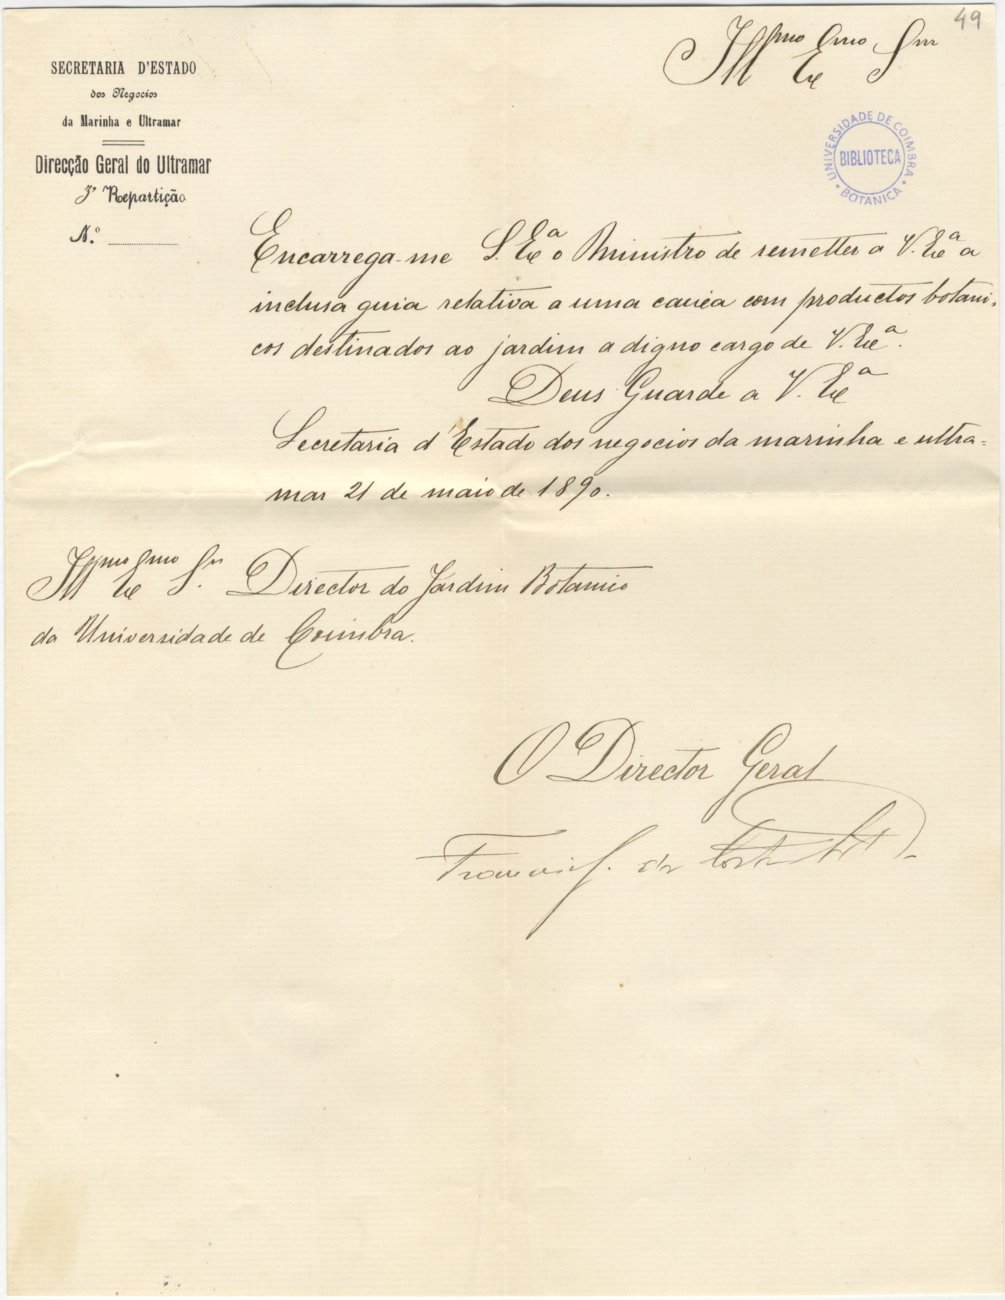 49
Ill.mo Ex.mo Snr
SECRETARIA D'ESTADO
dos Negocios
da Marinha e Ultramar
Direcção Geral do Ultramar
3ª Repartição
N.º
UNIVERSIDADE DE COIMBRA
BIBLIOTECA
BOTANICA
Encarrega-me S. Exª o Ministro de remetter a V. Exª a
inclusa guia relativa a uma caixa com productos botani-
cos destinados ao jardim a digno cargo de V. Exª.
Deus Guarde a V. Exª
Secretaria d'Estado dos negocios da marinha e ultra-
mar 21 de maio de 1890.
Ill.mo Ex.mo Snr. Director do Jardim Botanico
da Universidade de Coimbra.
O Director Geral
da Costa